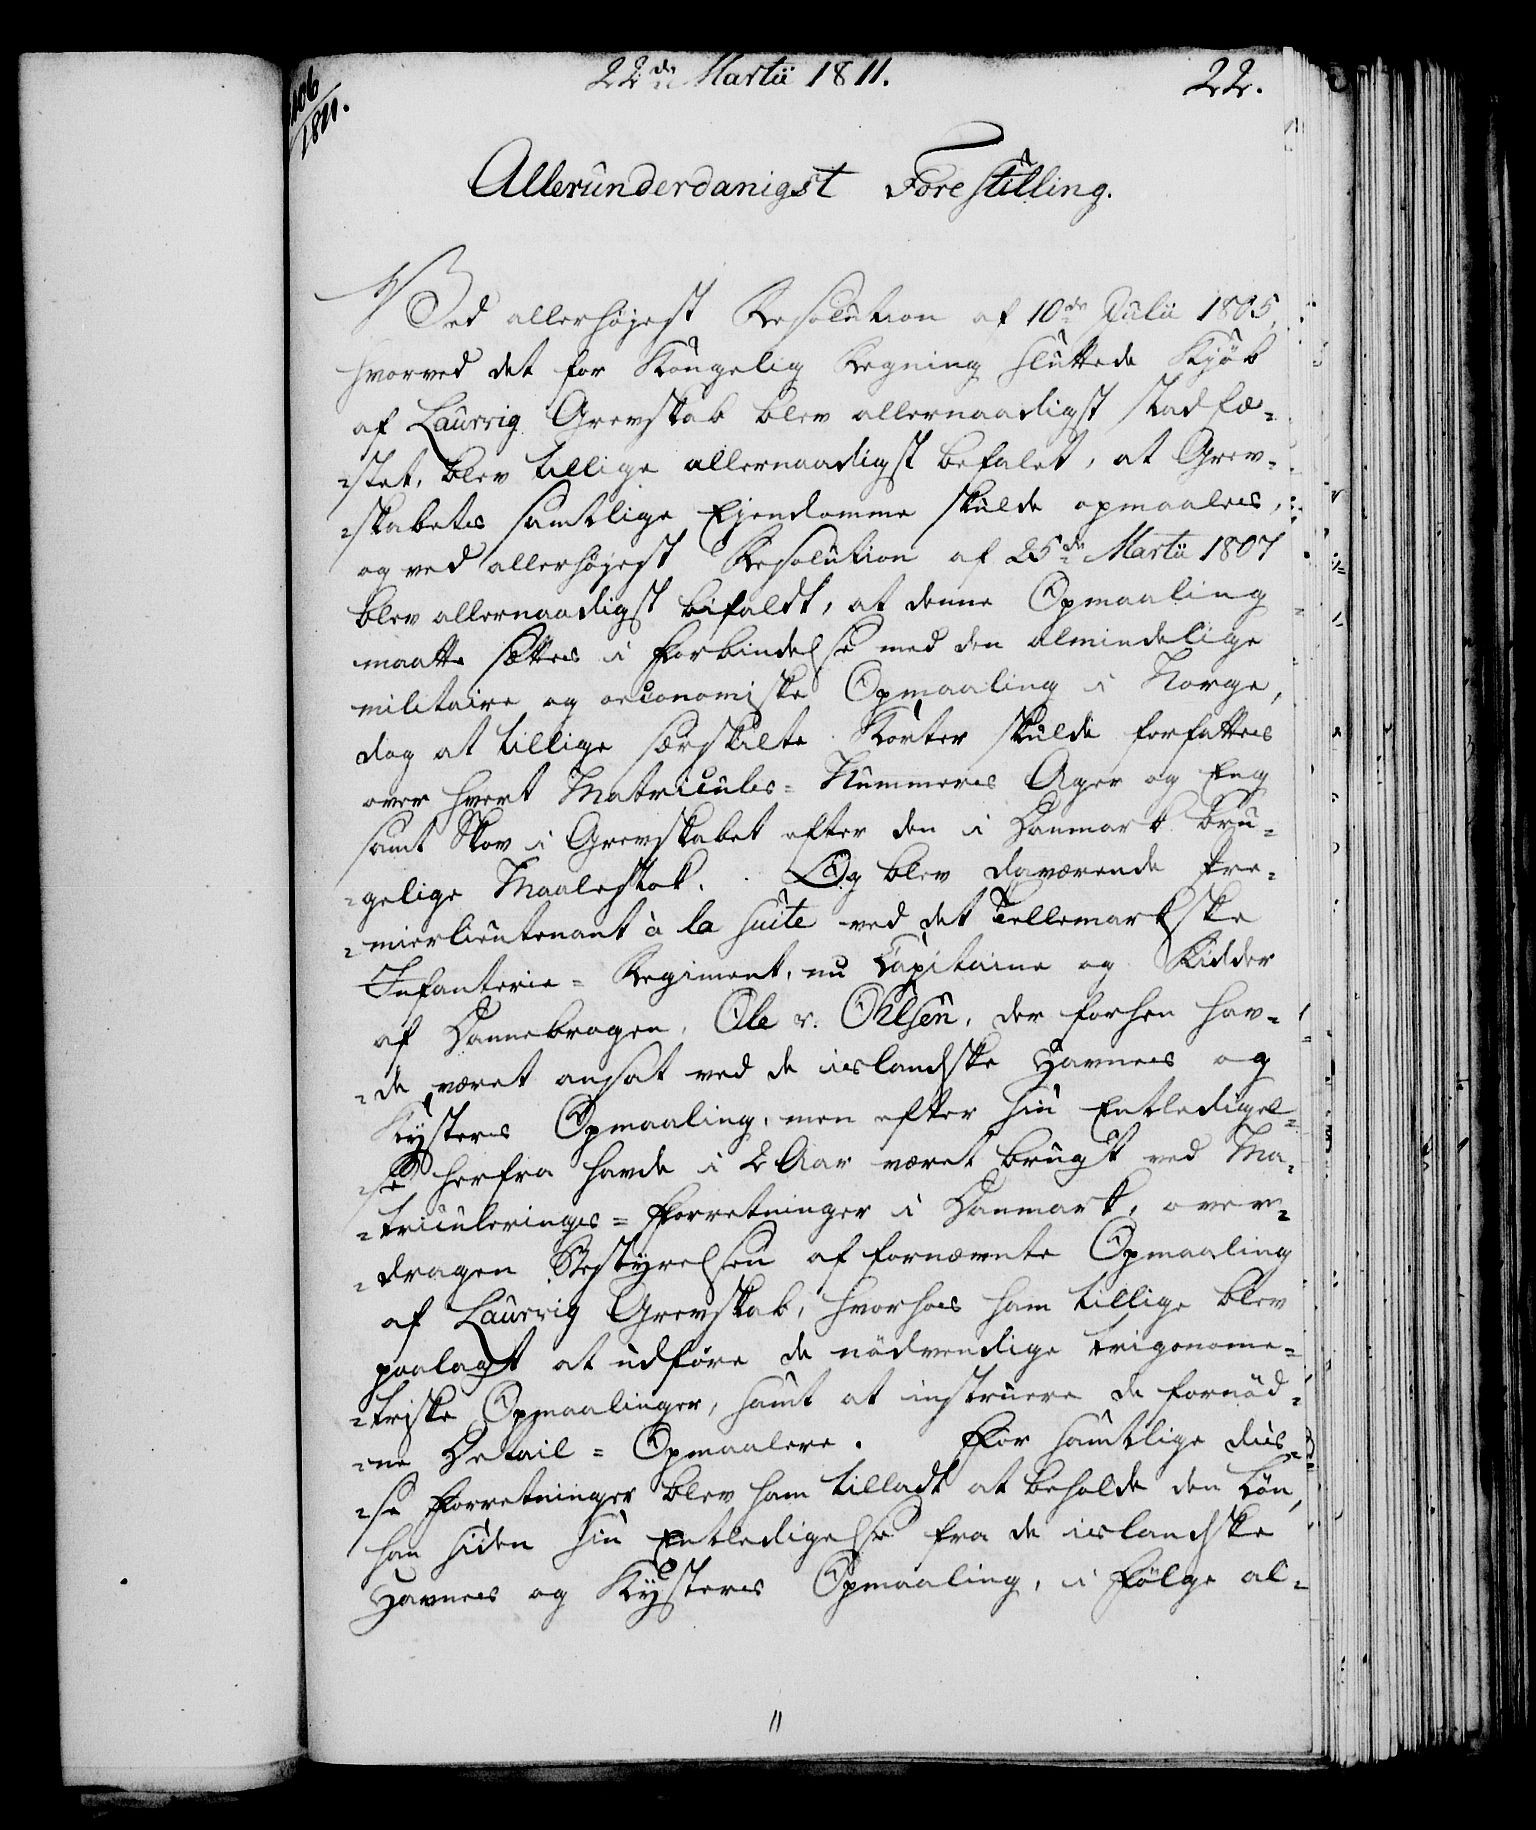 22de Martii 1811.
22.
106/1811.
Allerunderdanigst Forestilling.
Ved allerhøjest Resolution af 10de Julii 1805,
hvorved det for Kongelig Regning sluttede Kjöb
af Laurvig Grevskab blev allernaadigst stadfæ-
-stet, blev tillige allernaadigst befalet, at Grev-
-skabets samtlige Ejendomme skulde opmaales,
og ved allerhøjest Resolution af 25de Martii 1807
blev allernaadigst bifaldt, at denne Opmaaling
maatte sættes i Forbindelse med den almindelige
militaire og oeconomiske Opmaaling i Norge,
dog at tillige særskilte Korter skulde forfattes
over hvert Matriculs-Nummeres Ager og Eng
samt Skov i Grevskabet efter den i Danmark bru-
-gelige Maalestok. Og blev daværende Pre-
-mierlieutenant à la suite ved det Tellemarkske
Infanterie-Regiment, nu Capitaine og Ridder
af Dannebrogen, Ole v. Ohlsen, der forhen hav-
-de været ansat ved de islandske Havnes og
Kysters Opmaaling, men efter sin Entledigel-
-se herfra havde i 2 Aar været brugt ved Ma-
-triculerings-Forretninger i Danmark, over-
-dragen Bestyrelsen af fornævnte Opmaaling
af Laurvig Grevskab, hvorhos ham tillige blev
paalagt at udføre de nödvendige trigonome-
-triske Opmaalinger, samt at instruere de fornöd-
-ne Detail-Opmaalere. For samtlige dis-
-se Forretninger blev ham tilladt at beholde den Lön,
han siden sin Entledigelse fra de islandske
Havnes og Kysters Opmaaling, i Fölge al-